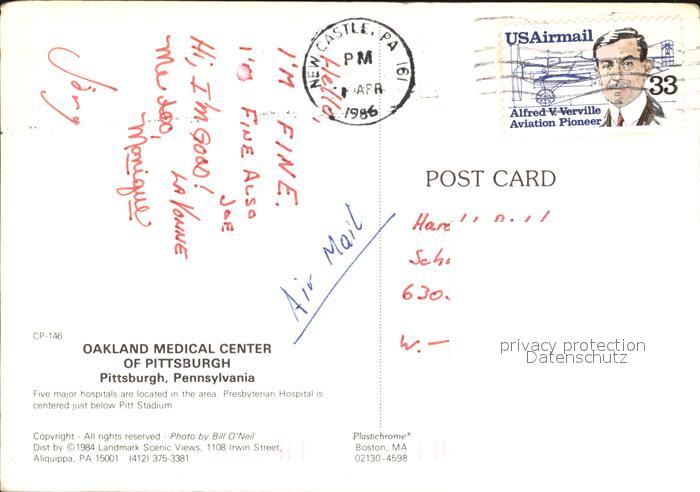 Hello,
I'M FINE.
I'm FINE ALSO
JOE
Hi, I'm Good!
LA VONNE
Me too,
Monique
NEW CASTLE, PA 161
PM
APR
1986
USAirmail
33
Alfred V. Verville
Aviation Pioneer
POST CARD
Air Mail
630
W. —
privacy protection
Datenschutz
CP-146
OAKLAND MEDICAL CENTER
OF PITTSBURGH
Pittsburgh, Pennsylvania
Five major hospitals are located in the area. Presbyterian Hospital is
centered just below Pitt Stadium
Copyright - All rights reserved - Photo by Bill O'Neil
Dist by ©1984 Landmark Scenic Views, 1108 Irwin Street,
Aliquippa, PA 15001 (412) 375-3381
Plastichrome®
Boston, MA
02130-4598